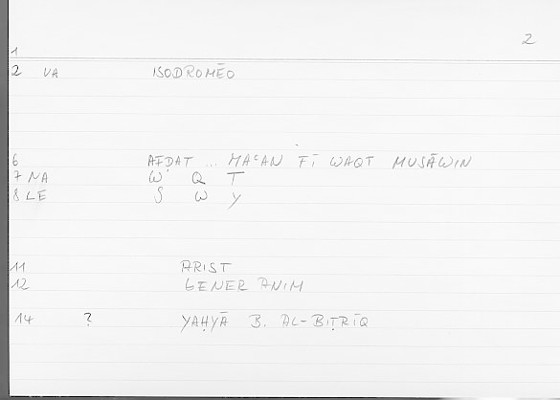 2
1
2 VA ISODROMĒO
6 AFḌAT ... MAʿAN FĪ WAQT MUSĀWIN
7 NA W Q T
8 LE S W Y
11 ARIST
12 GENER ANIM
14 ? YAḤYĀ B. AL-BIṬRĪQ